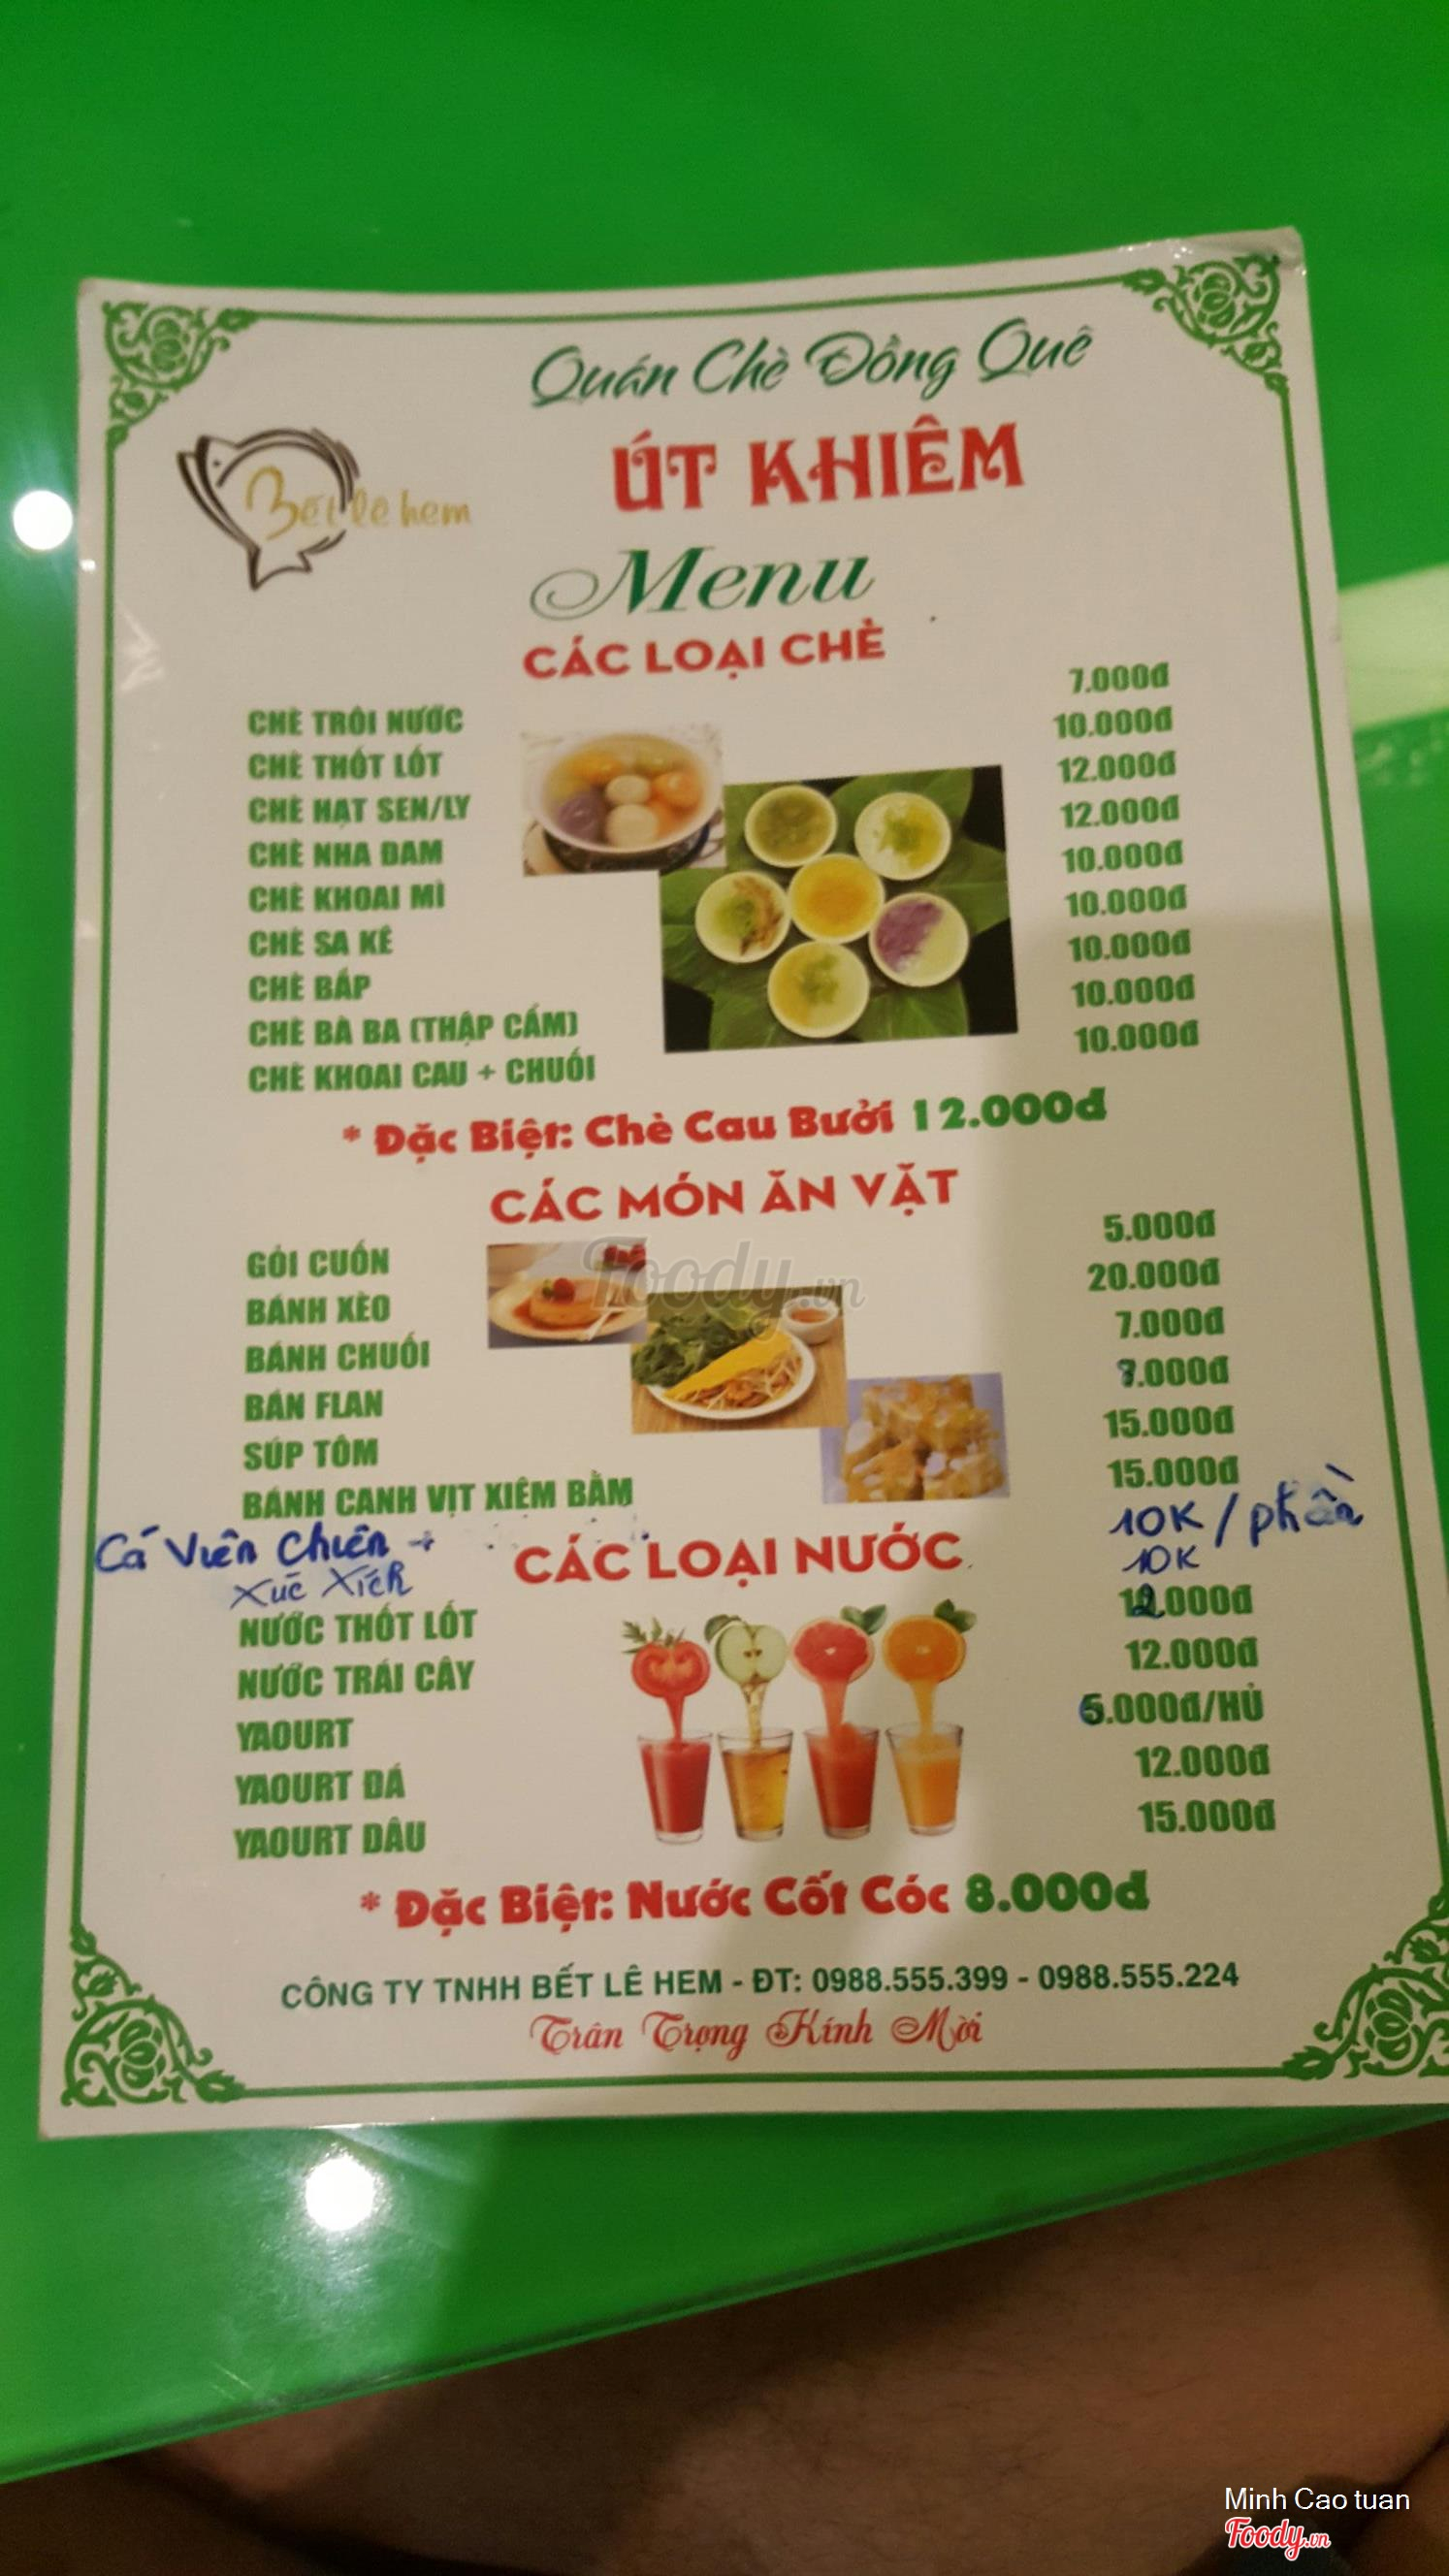 Quán Chè Đồng Quê
ÚT KHIÊM
Bết lê hem
Menu
CÁC LOẠI CHÈ
CHÈ TRÔI NƯỚC 7.000đ
CHÈ THỐT LỐT 10.000đ
CHÈ HẠT SEN/LY 12.000đ
CHÈ NHA ĐAM 12.000đ
CHÈ KHOAI MÌ 10.000đ
CHÈ SA KÊ 10.000đ
CHÈ BẮP 10.000đ
CHÈ BÀ BA (THẬP CẨM) 10.000đ
CHÈ KHOAI CAU + CHUỐI 10.000đ
* Đặc Biệt: Chè Cau Bưởi 12.000đ
CÁC MÓN ĂN VẶT
GỎI CUỐN 5.000đ
BÁNH XÈO 20.000đ
BÁNH CHUỐI 7.000đ
BÁN FLAN .000đ
SÚP TÔM 15.000đ
BÁNH CANH VỊT XIÊM BẰM 15.000đ
Cá Viên Chiên + 10K/phần
Xúc Xích 10K
CÁC LOẠI NƯỚC
NƯỚC THỐT LỐT 12.000đ
NƯỚC TRÁI CÂY 12.000đ
YAOURT 6.000đ/HỦ
YAOURT ĐÁ 12.000đ
YAOURT DÂU 15.000đ
* Đặc Biệt: Nước Cốt Cóc 8.000đ
CÔNG TY TNHH BẾT LÊ HEM - ĐT: 0988.555.399 - 0988.555.224
Trân Trọng Kính Mời
Foody.vn
Minh Cao tuan
Foody.vn